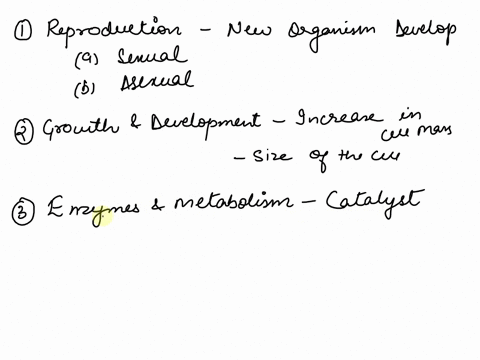 ① Reproduction - New Organism Develop
(a) Sexual
(b) Asexual
② Growth & Development - Increase in cell mass
- Size of the cell
③ Enzymes & metabolism - Catalyst